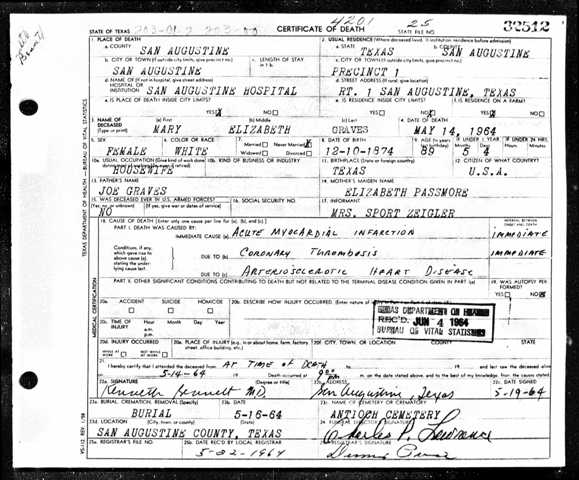 4201 25
STATE OF TEXAS CERTIFICATE OF DEATH STATE FILE NO. 32512
1. PLACE OF DEATH 2. USUAL RESIDENCE (Where deceased lived. If institution: residence before admission)
a. COUNTY SAN AUGUSTINE a. STATE TEXAS b. COUNTY SAN AUGUSTINE
b. CITY OR TOWN (If outside city limits, give precinct no.) c. LENGTH OF STAY in 1 b. c. CITY OR TOWN (If outside city limits, give precinct no.)
SAN AUGUSTINE PRECINCT 1
d. NAME OF (If not in hospital, give street address) d. STREET ADDRESS (If rural, give location)
HOSPITAL OR INSTITUTION SAN AUGUSTINE HOSPITAL RT. 1 SAN AUGUSTINE, TEXAS
e. IS PLACE OF DEATH INSIDE CITY LIMITS? e. IS RESIDENCE INSIDE CITY LIMITS? f. IS RESIDENCE ON A FARM?
YES NO YES NO YES NO
3. NAME OF DECEASED (Type or print) (a) First (b) Middle (c) Last 4. DATE OF DEATH
MARY ELIZABETH GRAVES MAY 14, 1964
5. SEX 6. COLOR OR RACE 7. Married Never Married Widowed Divorced 8. DATE OF BIRTH 9. AGE IF UNDER 1 YEAR IF UNDER 24 HRS.
FEMALE WHITE 12-10-1874 89 5 4
10a. USUAL OCCUPATION (Give kind of work done 10b. KIND OF BUSINESS OR INDUSTRY 11. BIRTHPLACE (State or foreign country) 12. CITIZEN OF WHAT COUNTRY?
HOUSEWIFE TEXAS U.S.A.
13. FATHER'S NAME 14. MOTHER'S MAIDEN NAME
JOE GRAVES ELIZABETH PASSMORE
15. WAS DECEASED EVER IN U.S. ARMED FORCES? 16. SOCIAL SECURITY NO. 17. INFORMANT
NO MRS. SPORT ZEIGLER
18. CAUSE OF DEATH [Enter only one cause per line for (a), (b), and (c).] INTERVAL BETWEEN
PART I. DEATH WAS CAUSED BY:
IMMEDIATE CAUSE (a) ACUTE MYOCARDIAL INFARCTION IMMEDIATE
Conditions, if any, which gave rise to above cause (a), stating the underlying cause last.
DUE TO (b) CORONARY THROMBOSIS IMMEDIATE
DUE TO (c) ARTERIOSCLEROTIC HEART DISEASE
PART II. OTHER SIGNIFICANT CONDITIONS CONTRIBUTING TO DEATH BUT NOT RELATED TO THE TERMINAL DISEASE CONDITION GIVEN IN PART I (a) 19. WAS AUTOPSY PERFORMED?
YES NO
20a. ACCIDENT SUICIDE HOMICIDE 20b. DESCRIBE HOW INJURY OCCURRED.
20c. TIME OF INJURY Hour Month Day Year a.m. p.m.
TEXAS DEPARTMENT OF HEALTH
REC'D. JUN 4 1964
BUREAU OF VITAL STATISTICS
20d. INJURY OCCURRED 20e. PLACE OF INJURY (e.g. in or about home, farm, factory, street, office building, etc.) 20f. CITY, TOWN, OR LOCATION COUNTY STATE
21. I hereby certify that I attended the deceased from AT TIME OF DEATH
5-14-64 Death occurred at m. on the date stated above, and to the best of my knowledge, from the causes stated.
22a. SIGNATURE (Degree or title) 22b. ADDRESS 22c. DATE SIGNED
Kenneth Bennett M.D. San Augustine, Texas 5-19-64
23a. BURIAL, CREMATION, REMOVAL (Specify) 23b. DATE 23c. NAME OF CEMETERY OR CREMATORY
BURIAL 5-16-64 ANTIOCH CEMETERY
23d. LOCATION (City, town, or county) (State) 24. FUNERAL DIRECTOR'S SIGNATURE
SAN AUGUSTINE COUNTY, TEXAS Charles P. Lawrence
25a. REGISTRAR'S FILE NO. 25b. DATE REC'D BY LOCAL REGISTRAR
5-22-1964
TEXAS DEPARTMENT OF HEALTH — BUREAU OF VITAL STATISTICS
MEDICAL CERTIFICATION